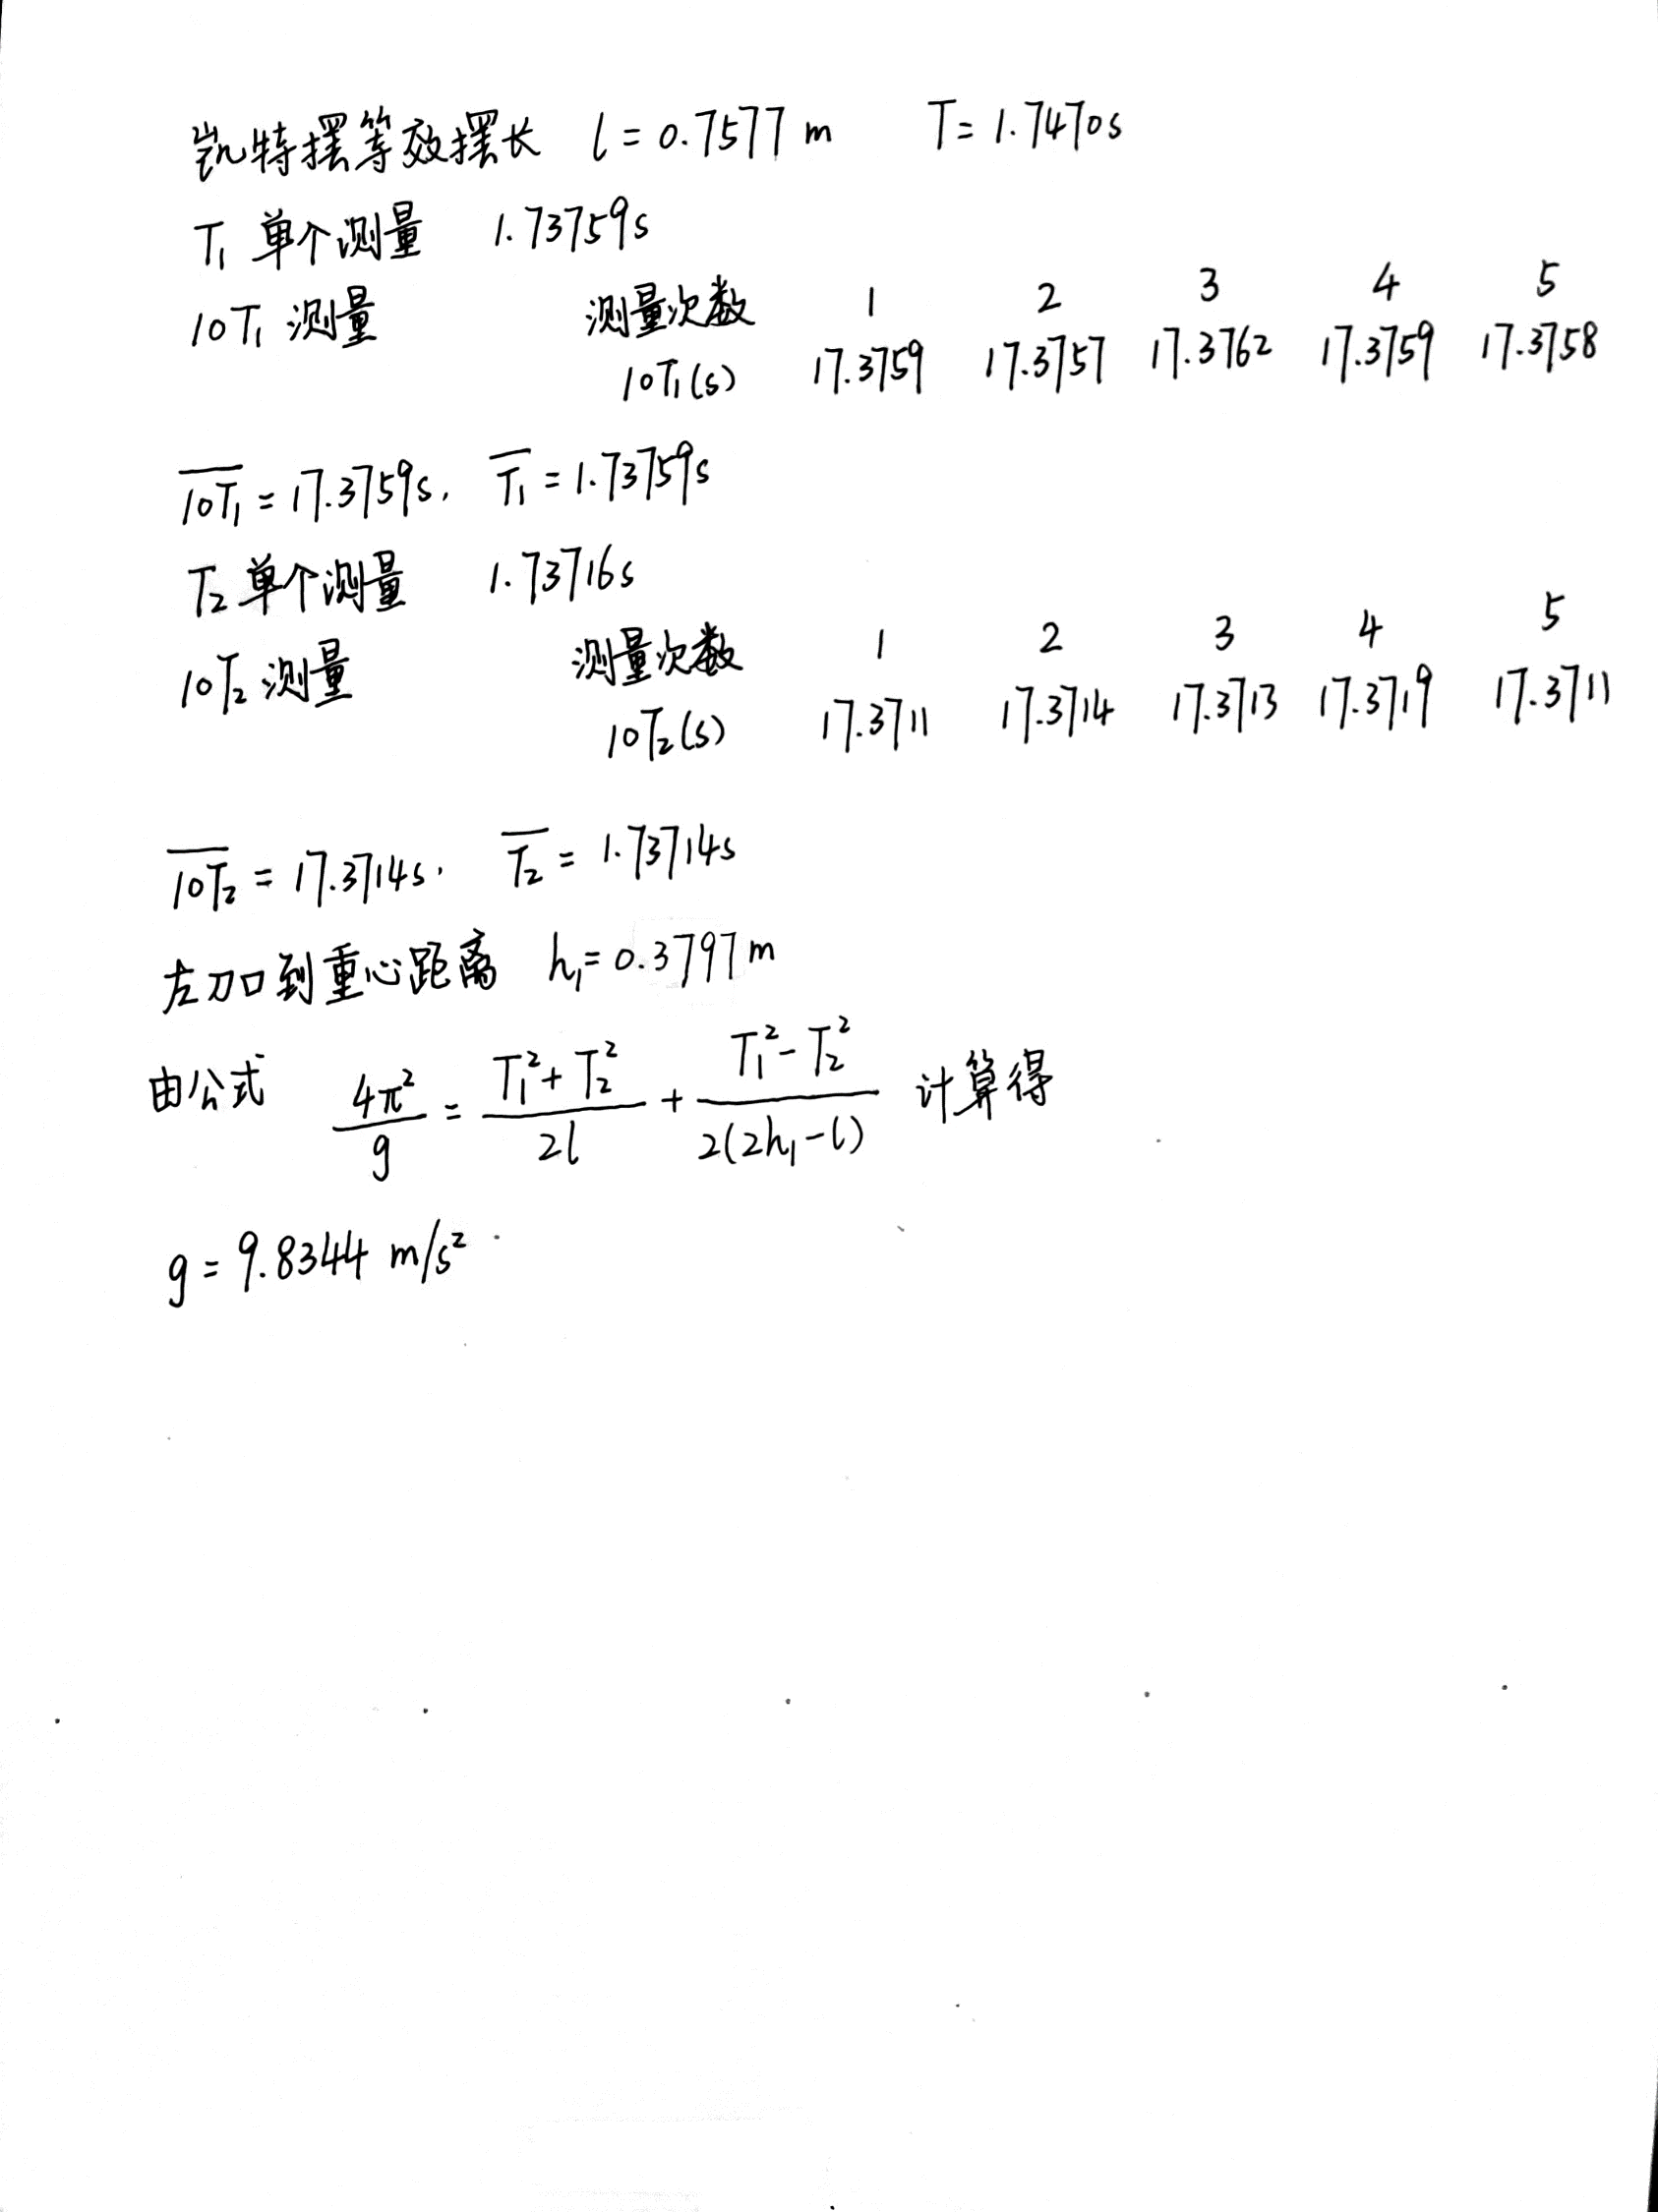 凯特摆等效摆长 l = 0.7577 m T = 1.7470s
T₁ 单个测量 1.73759s
10T₁ 测量 测量次数 1 2 3 4 5
10T₁(s) 17.3759 17.3757 17.3762 17.3759 17.3758
\overline{10T₁} = 17.3759s, \overline{T₁} = 1.73759s
T₂ 单个测量 1.73716s
10T₂ 测量 测量次数 1 2 3 4 5
10T₂(s) 17.3711 17.3714 17.3713 17.3719 17.3711
\overline{10T₂} = 17.3714s. \overline{T₂} = 1.73714s
左刀口到重心距离 h₁ = 0.3797 m
由公式 \frac{4π²}{g} = \frac{T₁² + T₂²}{2l} + \frac{T₁² - T₂²}{2(2h₁ - l)} 计算得
g = 9.8344 m/s²